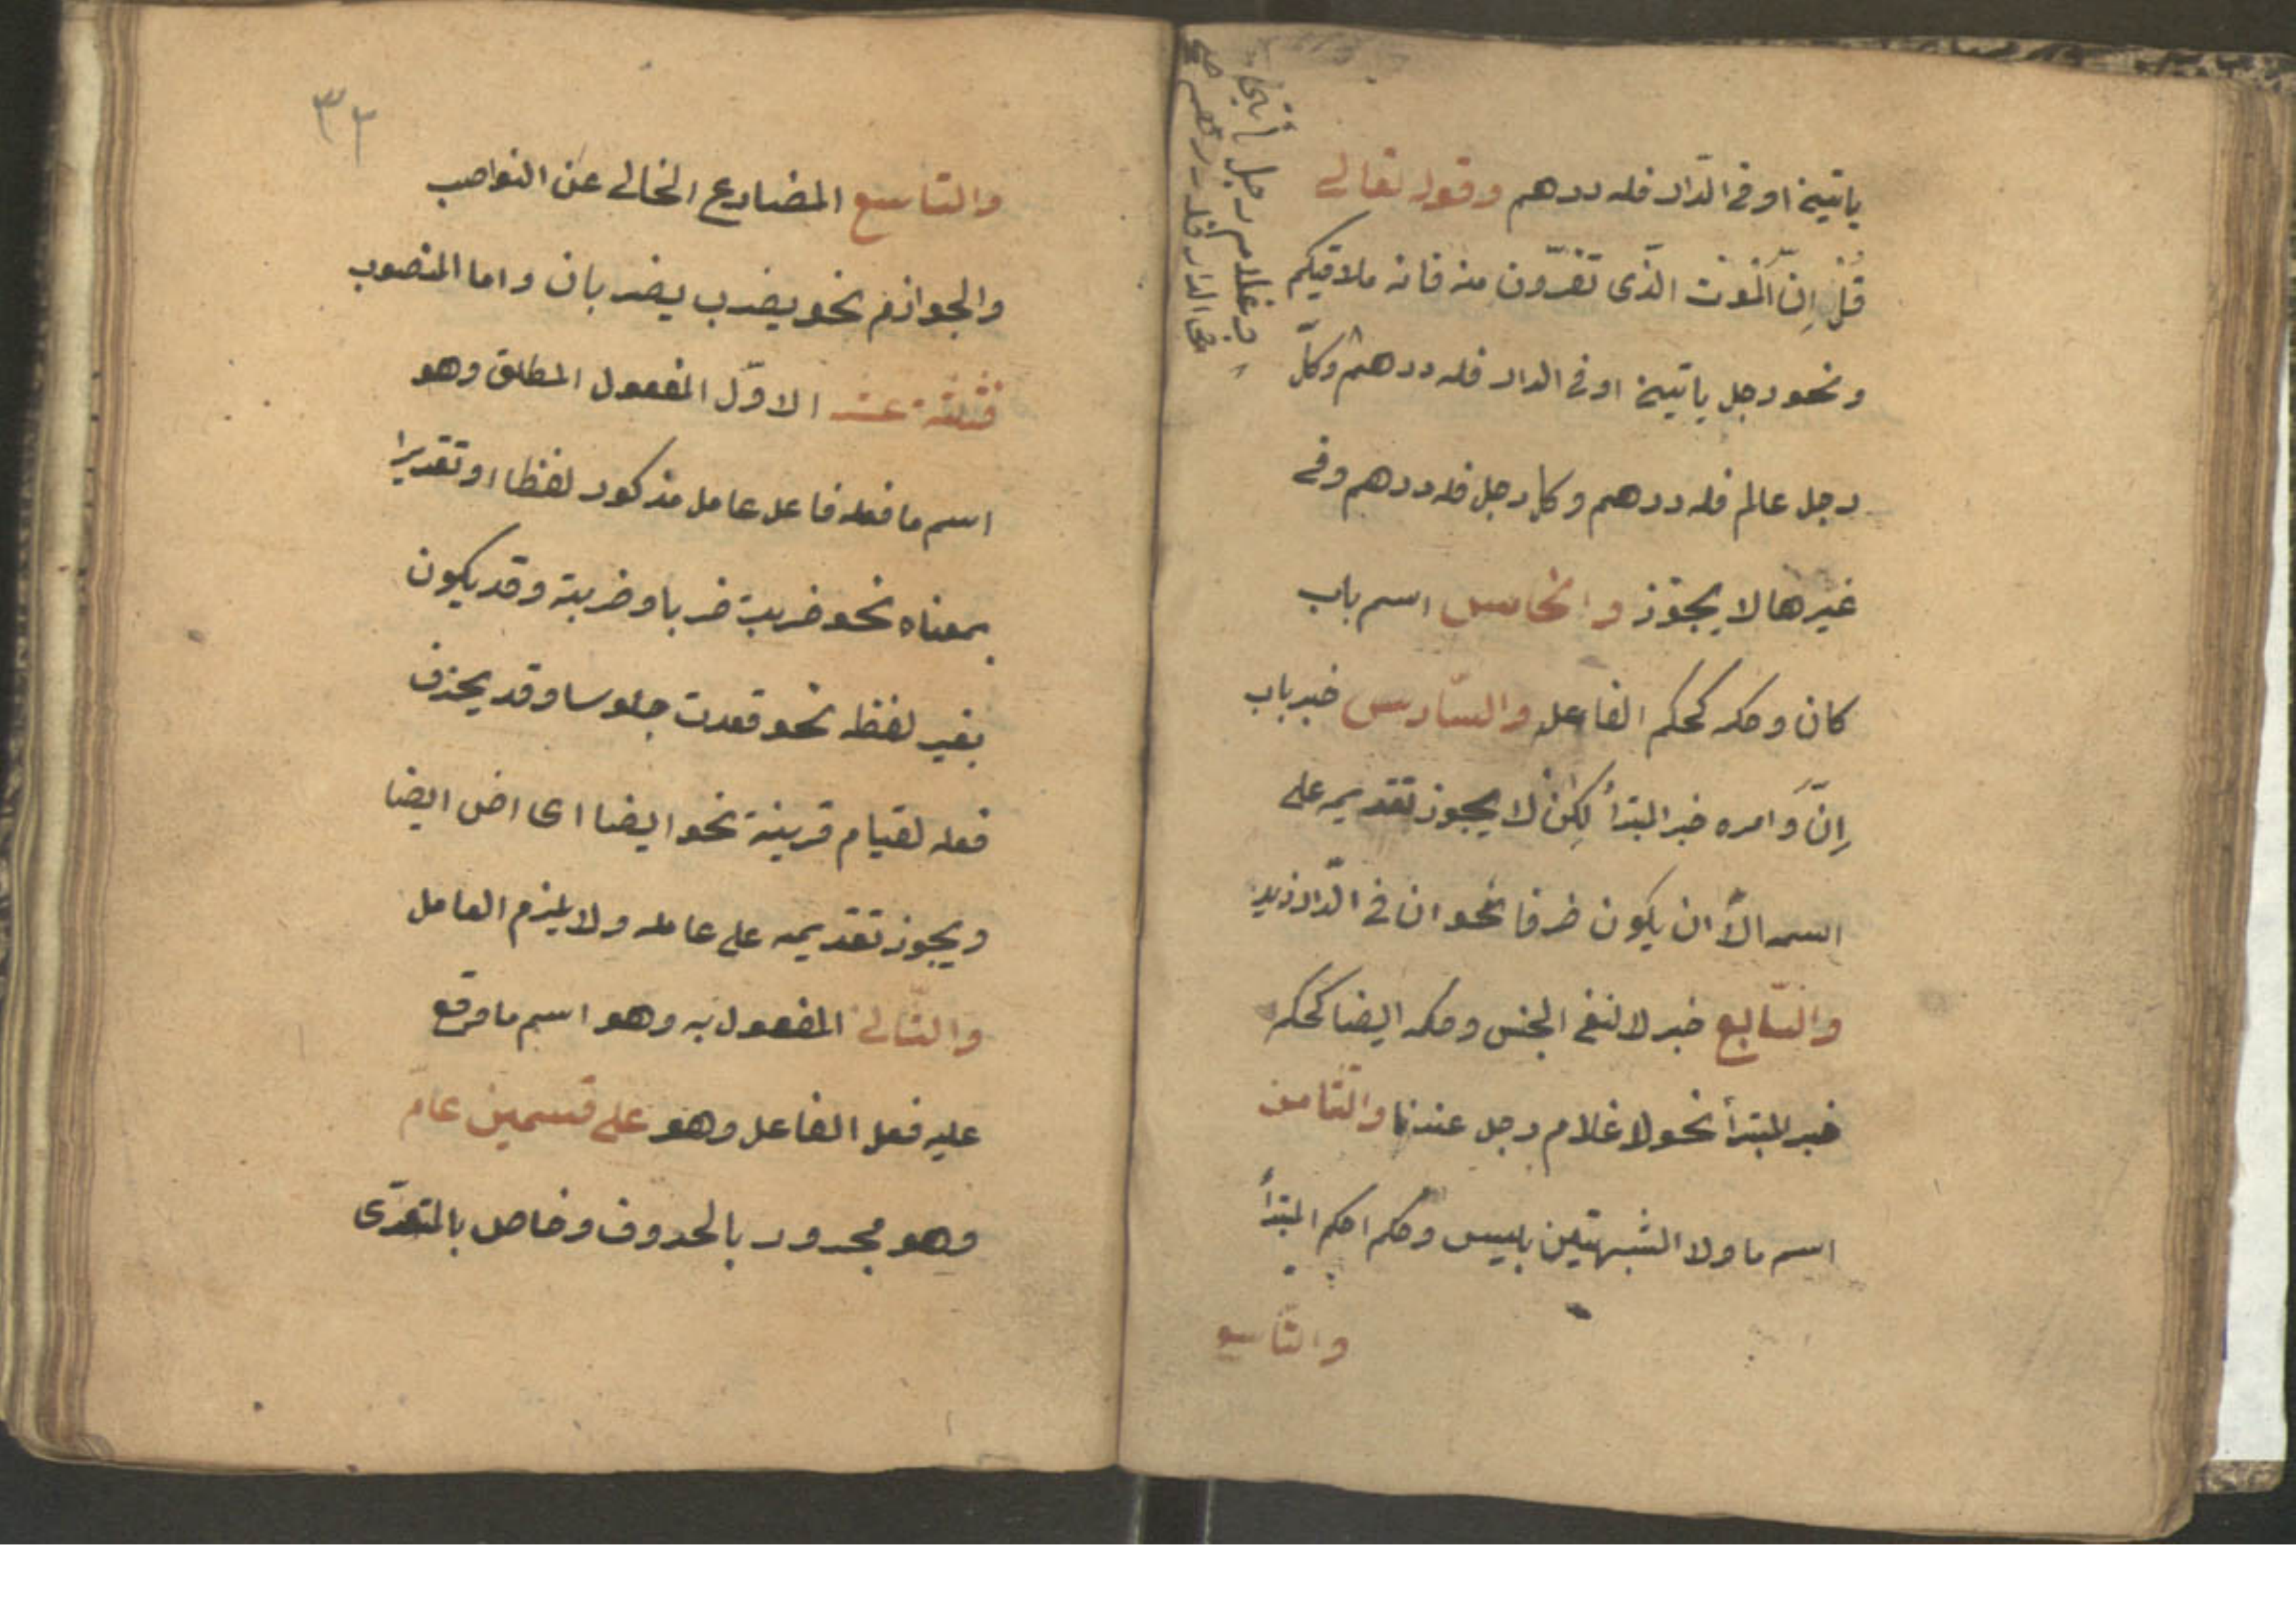 ياتينى او فى الدّار فله درهم وقوله تعالى
قُلْ اِنّ الْمَوْت الّذى تفرّون منه فانه ملاقيكم
ونحو رجل ياتينى او فى الدار فله درهم وكلّ
رجل عالم فله درهم وكل رجل فله درهم وفى
غيرها لا يجوز والخامس اسم باب
كان وحكمه كحكم الفاعل والسّادس خبر باب
اِنّ وامره خبر المبتدأ لكن لا يجوز تقديمه على
اسمه الّا ان يكون ظرفا نحو ان فى الدّار زيد
والسّابع خبر لا لنفى الجنس وحكمه ايضا كحكم
خبر المبتدأ نحو لا غلام رجل عندنا والثّامن
اسم ما ولا المشبهتين بليس وحكمها حكم المبتدأ
والتّاسع
وغلام رجل
فى الدار فله درهم
٣٣
والتاسع المضارع الخالى عن النواصب
والجوازم نحو يضرب يضربان واما المنصوب
فثلثة عشر الاوّل المفعول المطلق وهو
اسم ما فعله فاعل عامل مذكور لفظا او تقديرا
بمعناه نحو ضربت ضربا وضربة وقد يكون
بغير لفظه نحو قعدت جلوسا وقد يحذف
فعله لقيام قرينة نحو ايضا اى اض ايضا
ويجوز تقديمه على عامله ولا يلزم العامل
والثّانى المفعول به وهو اسم ما وقع
عليه فعل الفاعل وهو على قسمين عامّ
وهو مجرور بالحروف وخاص بالمتعدّى